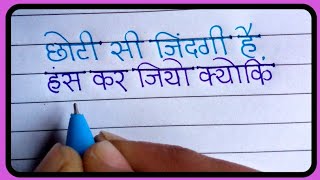 छोटी सी जिंदगी है
हंस कर जियो क्योकिं